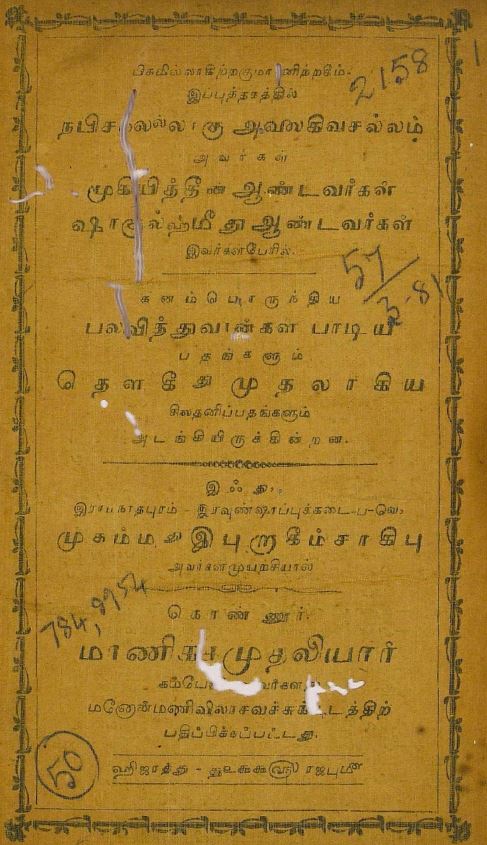 பிசுமில்லாகிற்றகுமானிற்றகீம்.
2158
இப்புத்தகத்தில்
நபிசலலல்லாகு அலைகிவசல்லம்
அவர்கள்
முகியித்தீன் ஆண்டவர்கள்
ஷாகுல்ஹமீது ஆண்டவர்கள்
இவர்கள்பேரில்.
57/3-81
கனம்பொருந்திய
பலவித்துவான்கள் பாடிய
பதங்களும்
தௌகீது முதலாகிய
சிலதனிப்பதங்களும்
அடங்கியிருக்கின்றன.
இஃது,
இராமநாதபுரம் - இரவுண்ஷாப்புக்கடை-ப-வெ.
முகம்மது இபுறாகீம்சாகிபு
அவர்கள்முயற்சியால்
கொண்ணூர்.
784,8954
மாணிக்கமுதலியார்
மனோன்மணிவிலாசவச்சுக்கூடத்திற்
பதிப்பிக்கப்பட்டது.
50
ஹிஜரத்து -